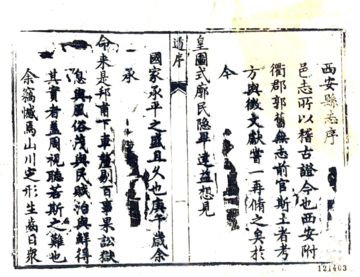 西安縣志序
邑志所以稽古證今也西安附
衢郡郭舊無志前官斯土者考
方輿徵文獻嘗一再脩之矣於
今
皇圖式廓民隱畢達益想見
遺序
國家承平之盛且久也庚午歲余
承
命來是邦甫下車釐剔百事果訟獄
息與風俗茂與民賦治與鮮得
其實者蓋周視聽若斯之難也
余竊憾焉山川定形生齒日眾
121403